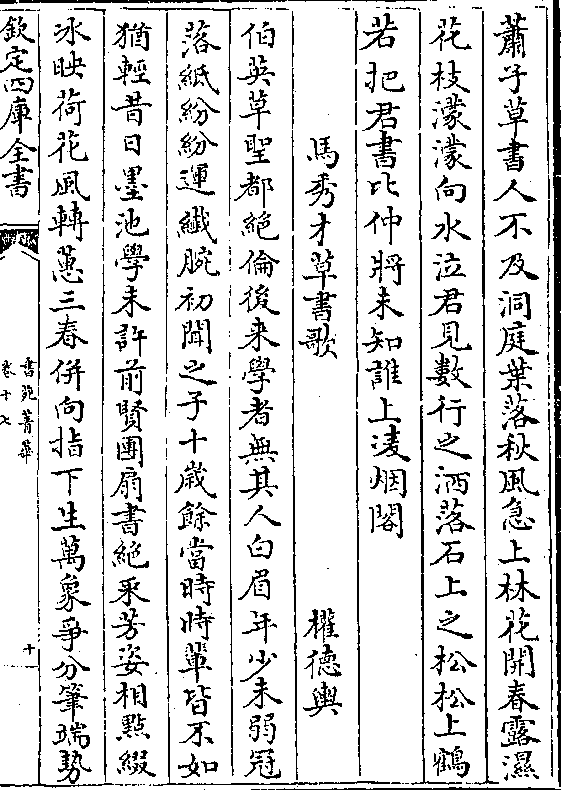 蕭子草書人不及洞庭葉落秋風急上林花開春露濕
花枝濛濛向水泣君見數行之洒落石上之松松上鶴
若把君書比仲將未知誰上凌烟閣
馬秀才草書歌 權德輿
伯英草聖都絕倫後来學者無其人白眉年少未弱冠
落紙紛紛運纖腕初聞之子十歳餘當時時輩皆不如
猶輕昔日墨池學未許前賢團扇書絕采芳姿相點綴
氷映荷花風轉蕙三春併向指下生萬象爭分筆端勢
欽定四庫全書
書苑菁華
卷十七
十